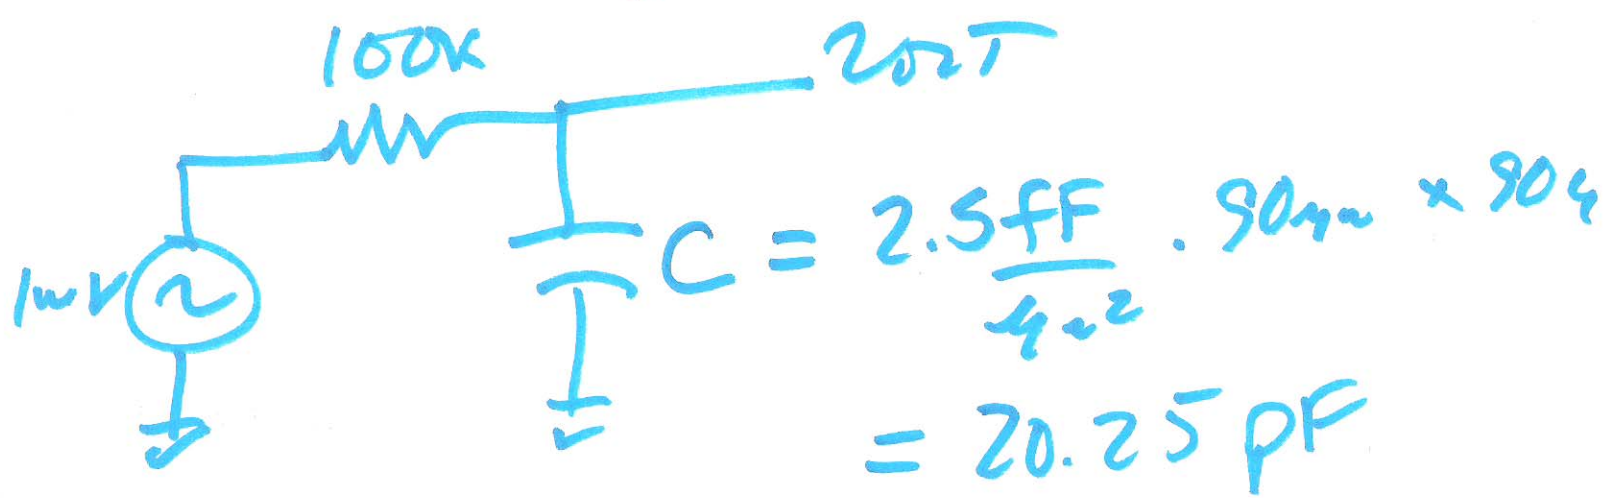 100K
VOUT
1mV
C = 2.5 fF/µm² · 90µm × 90µ
= 20.25 pF